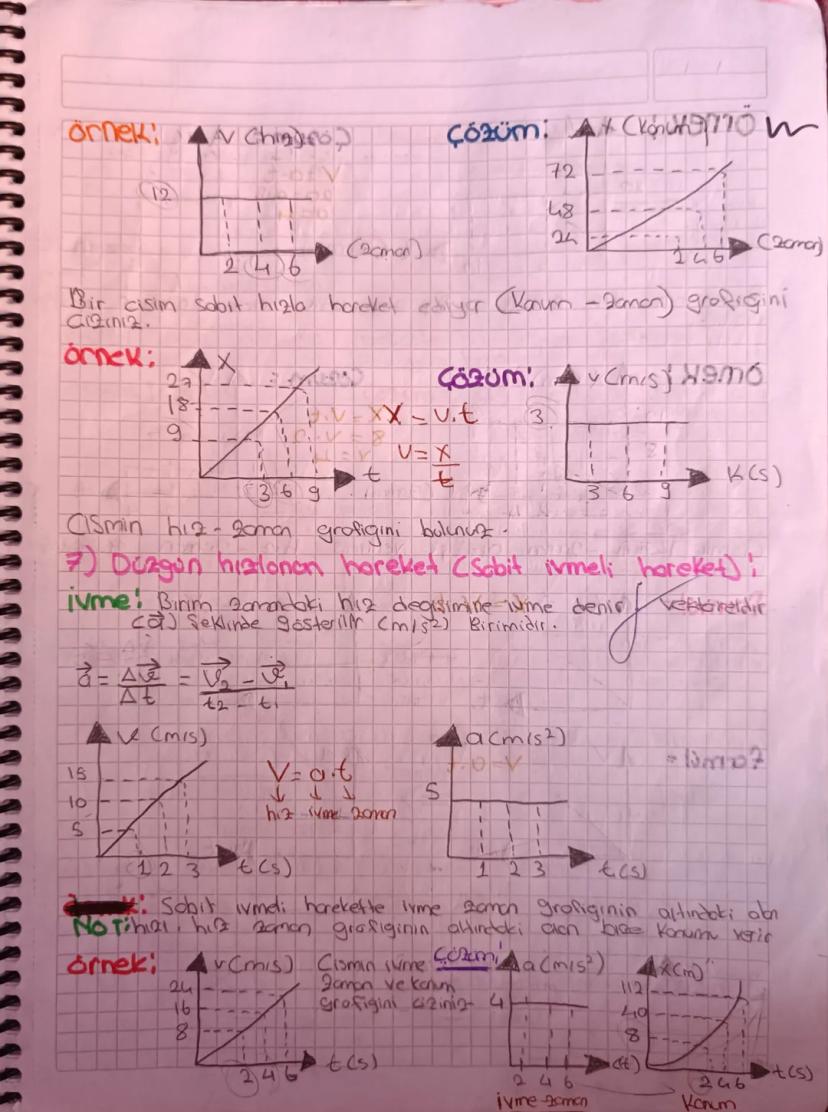 örnek:
V (hız)
12
2 4 6
(zaman)
Çözüm:
X (Konum)
72
48
24
2 4 6
(zaman)
Bir cisim sabit hızla hareket ediyor (Konum - zaman) grafiğini
çiziniz.
örnek:
X
27
18
9
3 6 9
t
X = v.t
v = x/t
Çözüm:
v (m/s)
3
3 6 9
K(s)
Cismin hız-zaman grafiğini bulunuz.
7) Düzgün hızlanan hareket (Sabit ivmeli hareket):
ivme: Birim zamandaki hız değişimine ivme denir vektöreldir
(a⃗) Şeklinde gösterilir (m/s²) Birimidir.
a⃗ = Δv⃗/Δt = (v⃗₂ - v⃗₁)/(t₂ - t₁)
v (m/s)
15
10
5
1 2 3
t(s)
V = a.t
↓ ↓ ↓
hız ivme zaman
a(m/s²)
5
1 2 3
t(s)
: Sabit ivmeli harekette ivme zaman grafiğinin altındaki alan
NOT: hızı, hız zaman grafiğinin altındaki alan bize konumu verir
örnek:
v(m/s)
24
16
8
2 4 6
t(s)
Cismin ivme
zaman ve konum
grafiğini çiziniz
Çözüm:
a(m/s²)
4
2 4 6
(t)
ivme-zaman
X(m)
112
40
8
2 4 6
t(s)
Konum